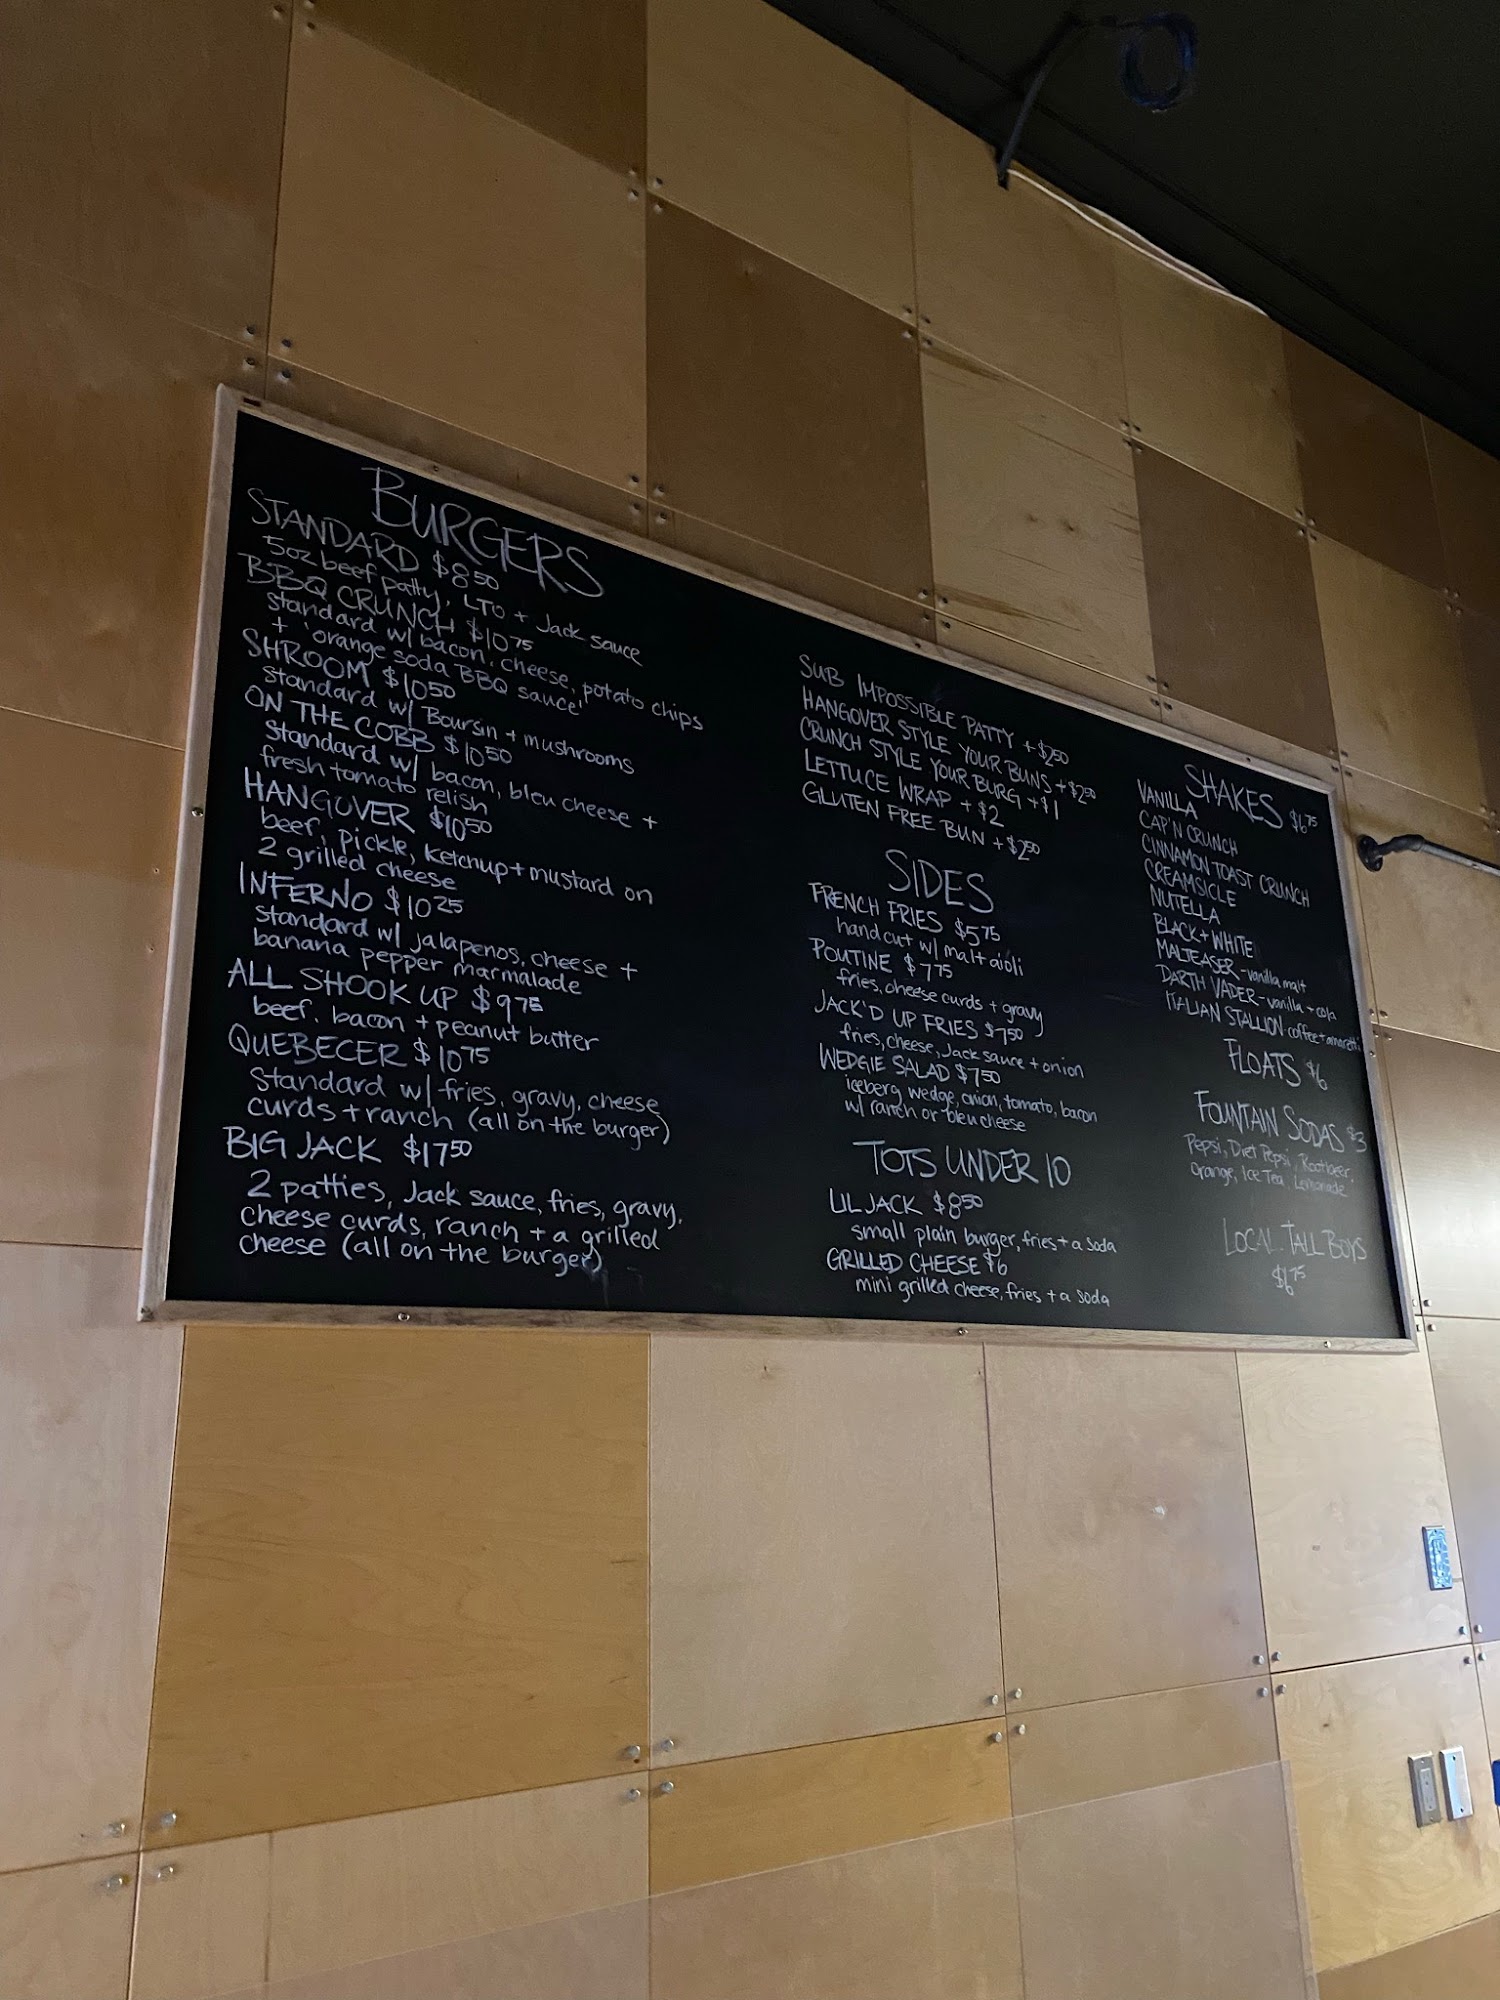 BURGERS
STANDARD $8.50
5oz beef patty, LTO + Jack sauce
BBQ CRUNCH $10.75
standard w/ bacon, cheese, potato chips
+ 'orange soda BBQ sauce'
SHROOM $10.50
standard w/ Boursin + mushrooms
ON THE COBB $10.50
standard w/ bacon, bleu cheese +
fresh tomato relish
HANGOVER $10.50
beef, pickle, ketchup + mustard on
2 grilled cheese
INFERNO $10.25
standard w/ jalapenos, cheese +
banana pepper marmalade
ALL SHOOK UP $9.75
beef, bacon + peanut butter
QUEBECER $10.75
Standard w/ fries, gravy, cheese
curds + ranch (all on the burger)
BIG JACK $17.50
2 patties, Jack sauce, fries, gravy,
cheese curds, ranch + a grilled
cheese (all on the burger)
SUB IMPOSSIBLE PATTY + $2.50
HANGOVER STYLE YOUR BUNS + $2.50
CRUNCH STYLE YOUR BURG + $1
LETTUCE WRAP + $2
GLUTEN FREE BUN + $2.50
SIDES
FRENCH FRIES $5.75
hand cut w/ malt aioli
POUTINE $7.75
fries, cheese curds + gravy
JACK'D UP FRIES $7.50
fries, cheese, Jack sauce + onion
WEDGIE SALAD $7.50
iceberg wedge, onion, tomato, bacon
w/ ranch or bleu cheese
TOTS UNDER 10
LIL JACK $8.50
small plain burger, fries + a soda
GRILLED CHEESE $6
mini grilled cheese, fries + a soda
SHAKES $6.75
VANILLA
CAP'N CRUNCH
CINNAMON TOAST CRUNCH
CREAMSICLE
NUTELLA
BLACK + WHITE
MALTEASER - vanilla malt
DARTH VADER - vanilla + cola
ITALIAN STALLION - coffee + amaretti
FLOATS $6
FOUNTAIN SODAS $3
Pepsi, Diet Pepsi, Rootbeer,
Orange, Ice Tea, Lemonade
LOCAL TALL BOYS
$6.75